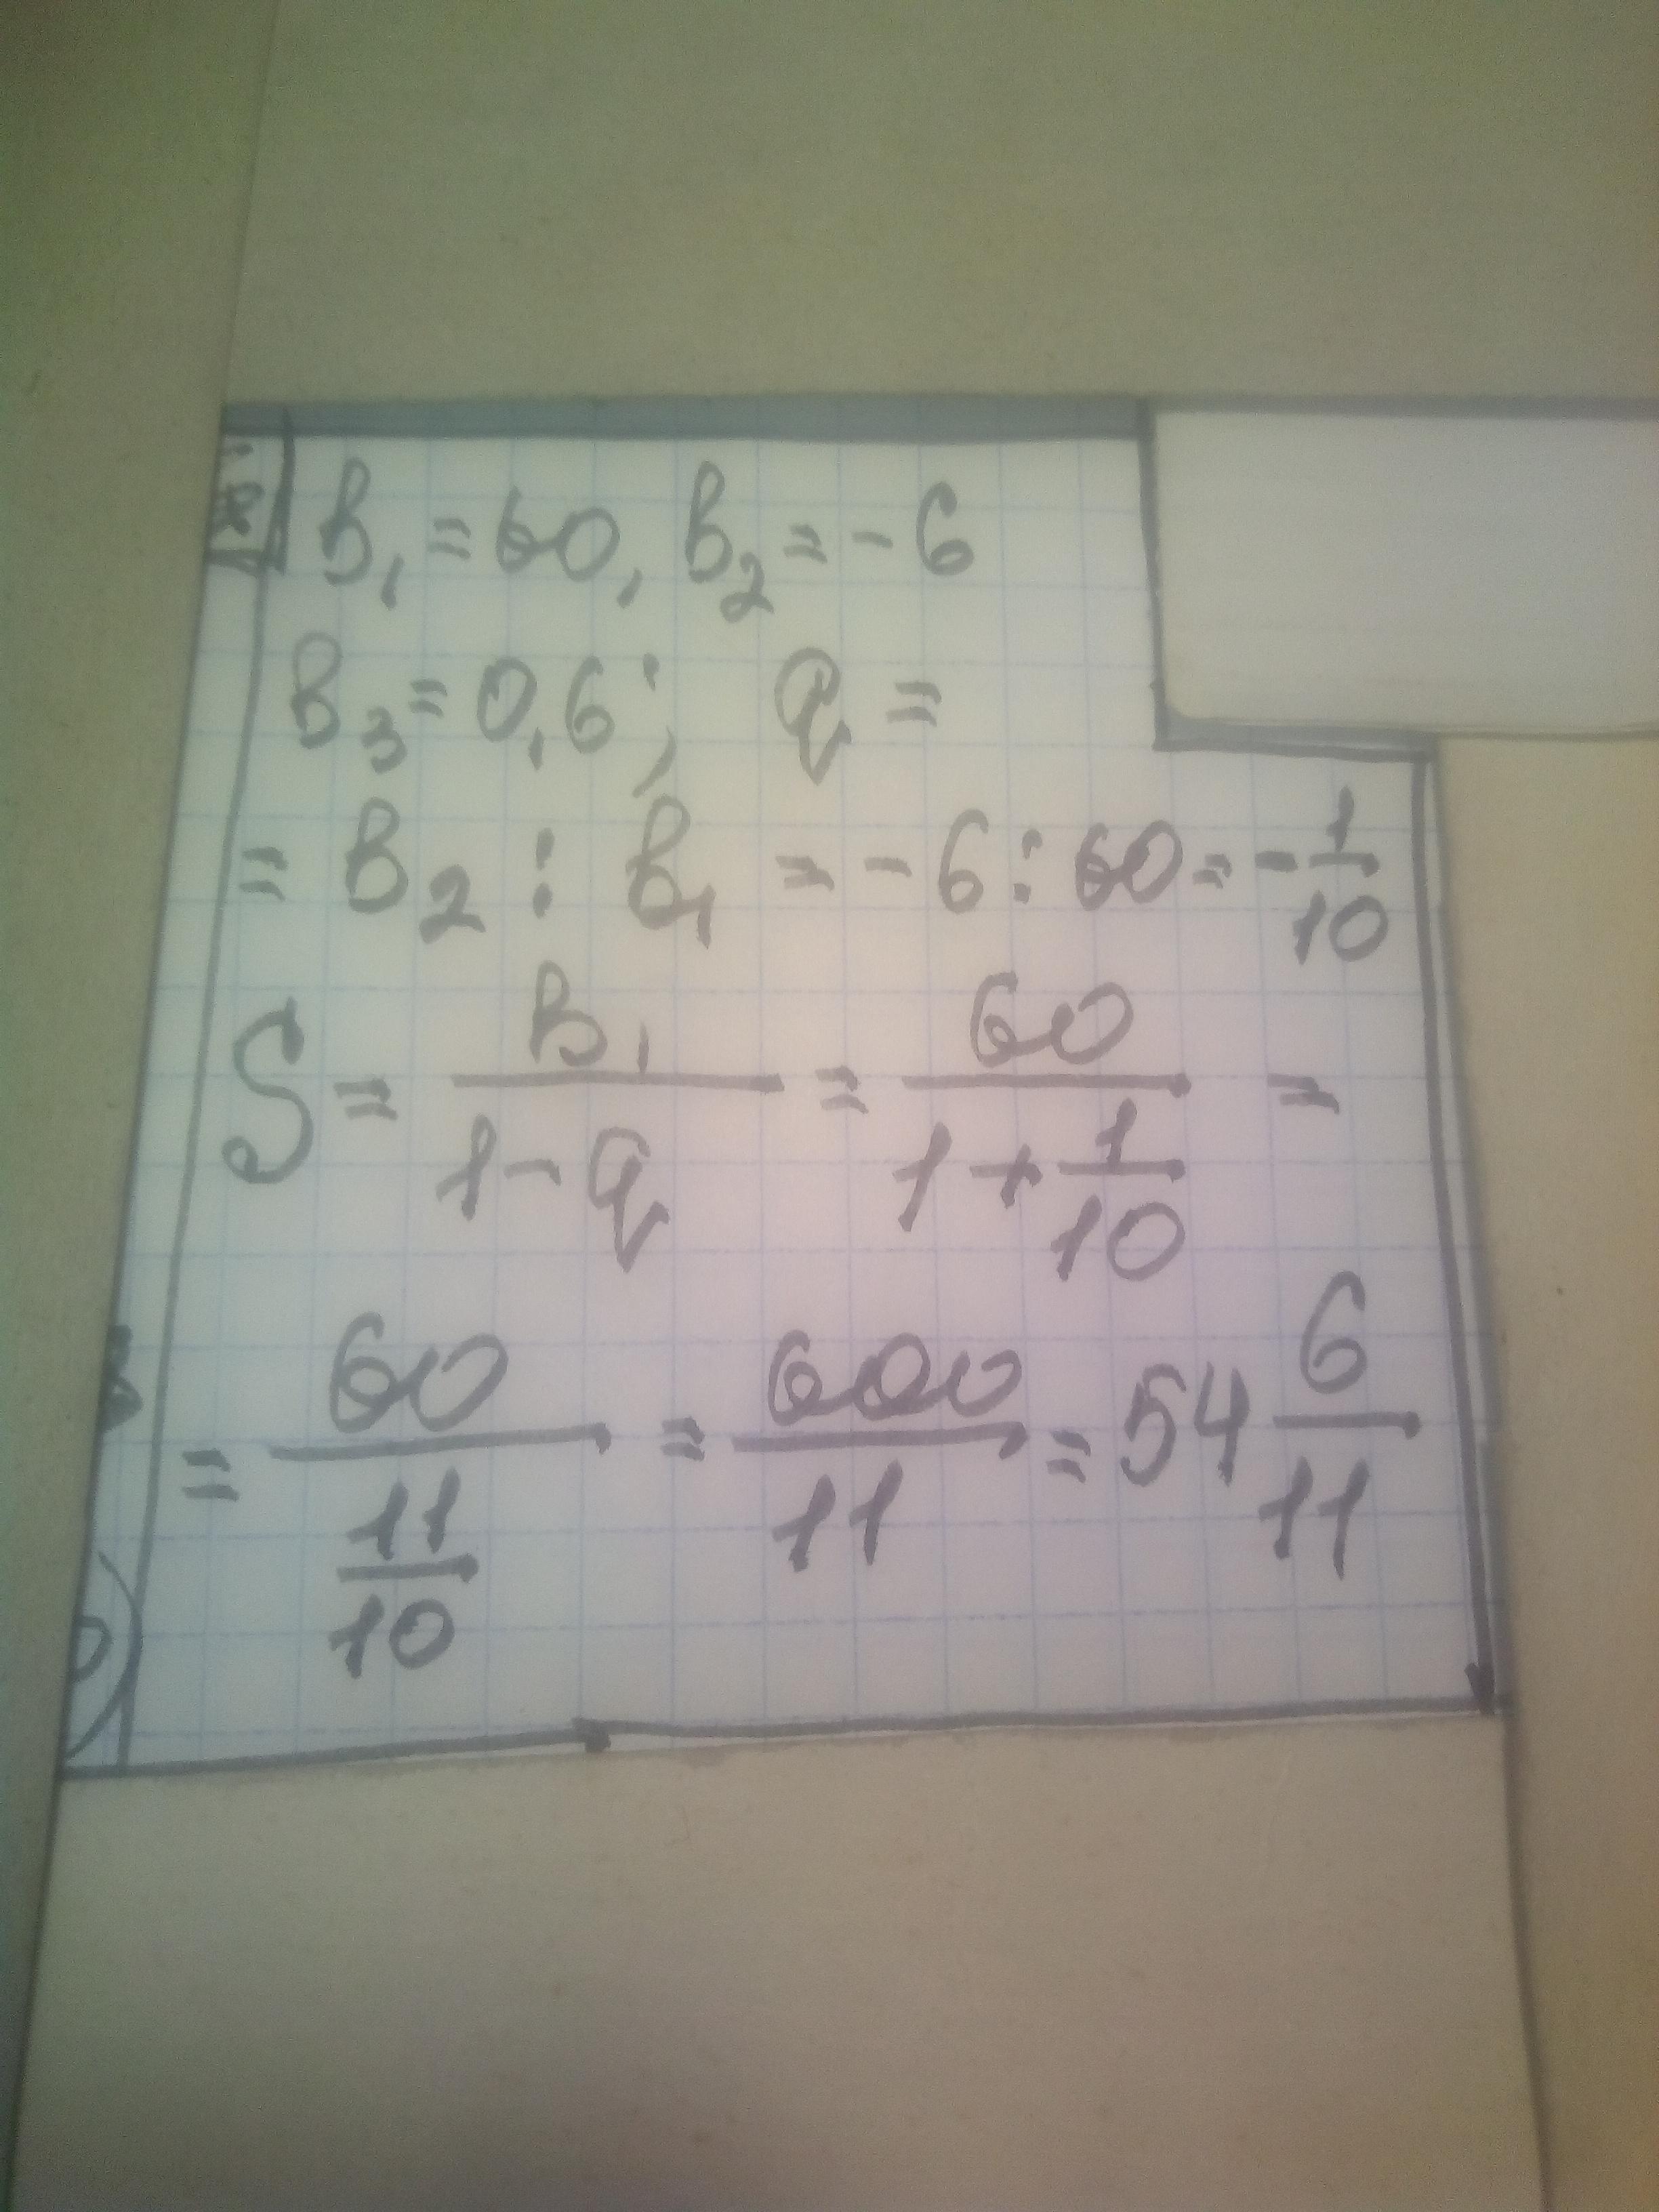 B₁ = 60, B₂ = - 6
B₃ = 0,6; q =
= B₂ : B₁ = - 6 : 60 = - 1/10
S = B₁/(1 - q) = 60/(1 + 1/10) =
= 60/(11/10) = 600/11 = 54 6/11